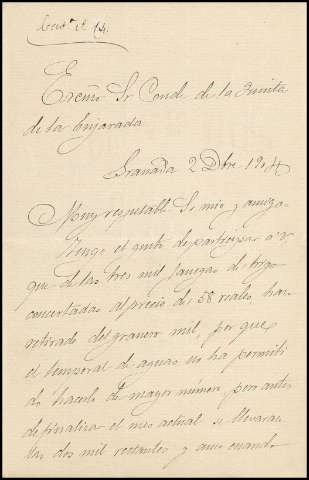 Cont.ª el 14.
Excmo Sr Conde de la Quinta
de la Enjarada
Granada 2 Dbre 1904
Muy respetable Sr mio y amigo.
Tengo el gusto de participar a V.
que de las tres mil fanegas de trigo
concertadas al precio de 58 reales, han
retirado del granero mil, por que
el temporal de aguas no ha permiti
do hacerlo de mayor número pero antes
de finalizar el mes actual se llevaran
las dos mil restantes y aun cuando